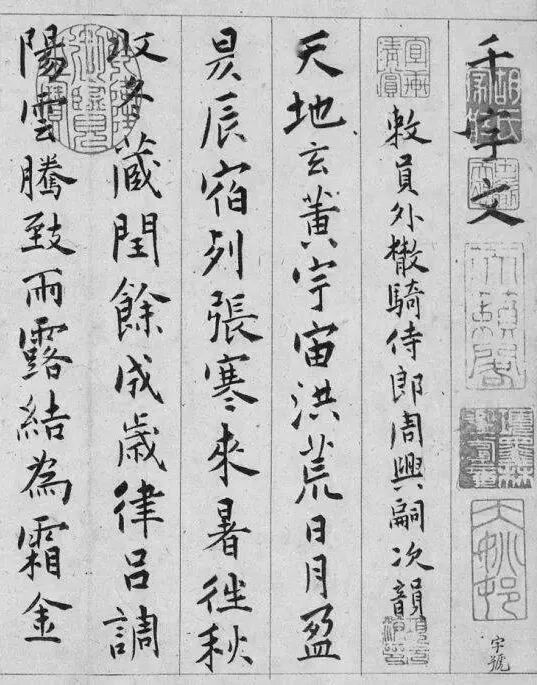 千字文
敕員外散騎侍郎周興嗣次韻
天地玄黃宇宙洪荒日月盈
昃辰宿列張寒來暑往秋
收冬藏閏餘成歲律呂調
陽雲騰致雨露結為霜金
字號